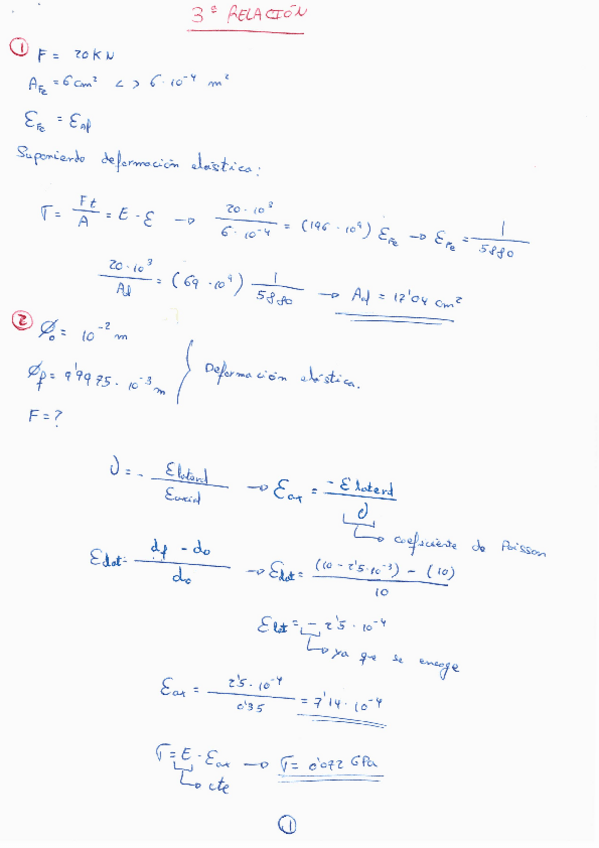 3ª RELACIÓN
① F = 20 KN
A_Fe = 6 cm² <> 6·10⁻⁴ m²
ε_Fe = ε_Al
Suponiendo deformación elástica:
σ = Ft/A = E · ε → 20·10³/6·10⁻⁴ = (196·10⁹) ε_Fe → ε_Fe = 1/5880
20·10³/Al = (69·10⁹) 1/5880 → A_Al = 17'04 cm²
② Ø₀ = 10⁻² m
Ø_f = 9'9975·10⁻³ m } Deformación elástica.
F = ?
ν = - ε lateral/ε axial → ε_ax = - ε lateral/ν
→ coeficiente de Poisson
ε_lat = df - do/do → ε_lat = (10 - 2'5·10⁻³) - (10)/10
ε_lat = - 2'5·10⁻⁴
→ ya que se encoge
ε_ax = 2'5·10⁻⁴/0'35 = 7'14·10⁻⁴
σ = E · ε_ax → σ = 0'072 GPa
→ cte
1